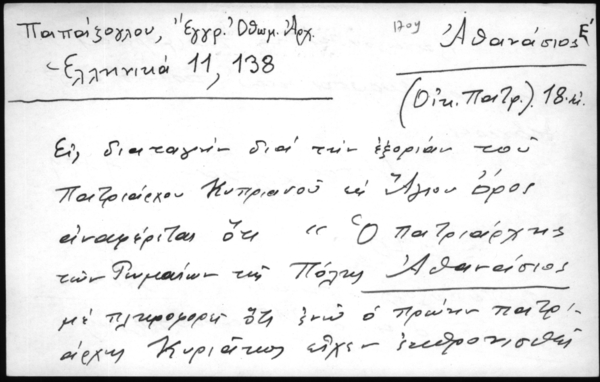 Παπάζογλου, "Έγγρ. Οθωμ. Αρχ.
Ἑλληνικά 11, 138
1709
Ἀθανάσιος Ε'
(Οἰκ. Πατρ.). 18. αἰ.
Εἰς διαταγὴν διὰ τὴν ἐξορίαν τοῦ
Πατριάρχου Κυπριανοῦ εἰς Ἅγιον Ὄρος
ἀναφέρεται ὅτι "Ὁ πατριάρχης
τῶν Ρωμαίων τῆς Πόλης Ἀθανάσιος
μὲ πληροφορεῖ ὅτι ἐνῶ ὁ πρώην πατρι-
άρχης Κυριάκος εἶχεν ἐκθρονισθῆ